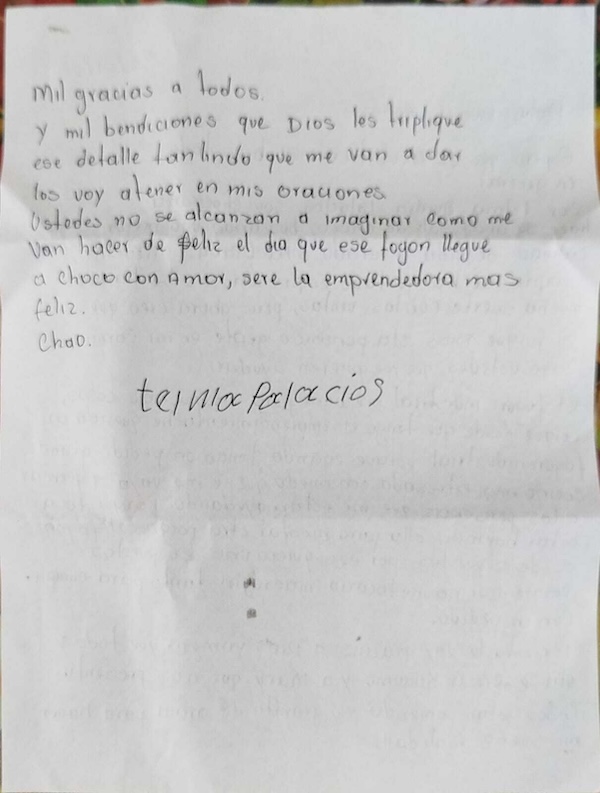 Mil gracias a todos.
y mil bendiciones que Dios les triplique
ese detalle tan lindo que me van a dar
los voy atener en mis oraciones.
Ustedes no se alcanzan a imaginar como me
van hacer de feliz el dia que ese fogon llegue
a choco con Amor, sere la emprendedora mas
feliz.
Chao.
Palacios